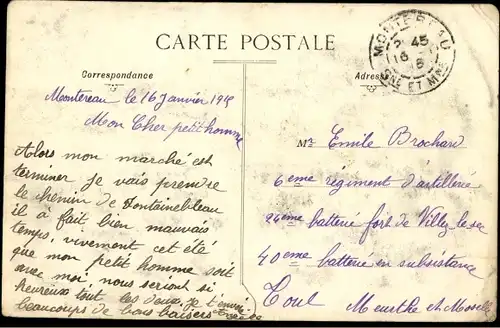 CARTE POSTALE
Correspondance
Adresse
MONTEREAU
SNE ET MNE
Montereau le 16 Janvier 19
Mon Cher petit homme
Alors mon marche est
terminer je vais prendre
le chemin de Fontainebleau
il a fait bien mauvais
temps, vivement cet été
que mon petit homme soit
avec moi, nous seriont si
heureux tout les deux, je t'envoi
beaucoups de bons baisers
Mr Emile Brochard
6eme régiment d'artillerie
24eme batterie fort de Villey-le-sec
40eme batterie en subsistance
Toul Meurthe et Moselle